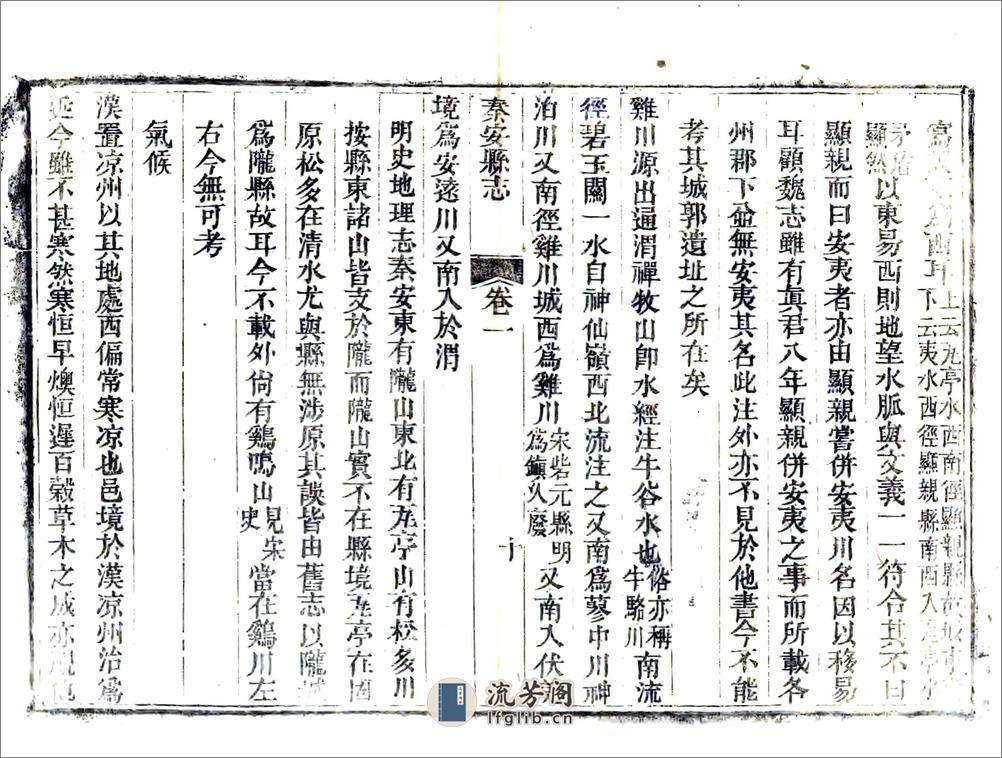 上云瓦亭水西南徑顯親縣故城東
下云夷水西徑顯親縣南西入瓦亭
顯然以東易西則地望水脈與文義一一符合其不曰
顯親而曰安夷者亦由顯親嘗併安夷川名因以移易
耳顧魏志雖有真君八年顯親併安夷之事而所載各
州郡下並無安夷其名此注外亦不見於他書今不能
考其城郭遺址之所在矣
雞川源出通渭禪牧山卽水經注牛谷水也俗亦稱牛駱川南流
徑碧玉關一水自神仙嶺西北流注之又南爲蓼中川神
泊川又南徑雞川城西爲雞川宋砦元縣明爲鎮久廢又南入伏
秦安縣志
卷一
十
境爲安遠川又南入於渭
明史地理志秦安東有隴山東北有瓦亭山有松多川
按縣東諸山皆支於隴而隴山實不在縣境瓦亭在固
原松多在清水尤與縣無涉原其誤皆由舊志以隴城
爲隴縣故耳今不載外尙有鷄鳴山見宋史當在鷄川左
右今無可考
氣候
漢置凉州以其地處西偏常寒凉也邑境於漢凉州治爲
近今雖不甚寒然寒恒早燠恒遲百穀草木之成亦
流芳阁
lfglib.cn